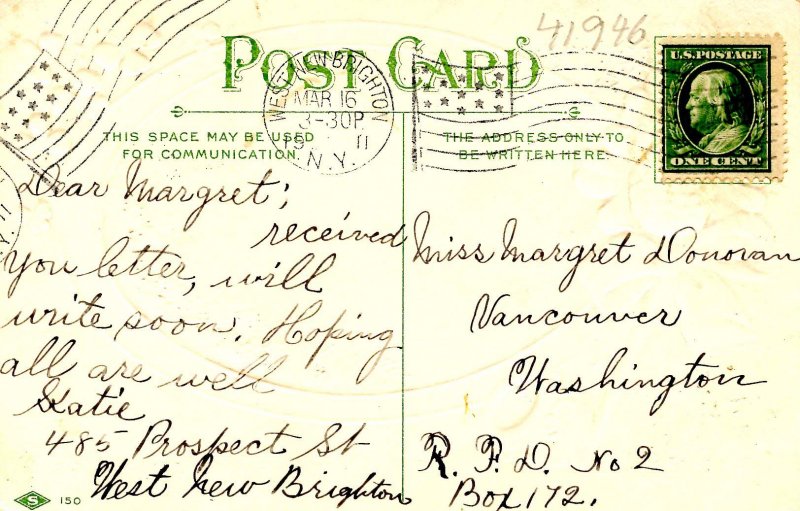 41946
POST CARD
WEST NEW BRIGHTON
MAR 16
3-30P
19 11
N.Y.
U.S. POSTAGE
ONE CENT
THIS SPACE MAY BE USED
FOR COMMUNICATION.
THE ADDRESS ONLY TO
BE WRITTEN HERE.
Dear Margret;
received
you letter, will
write soon. Hoping
all are well
Katie
485 Prospect St
West New Brighton
Miss Margret Donovan
Vancouver
Washington
R. F. D. No 2
Box 172.
S 150